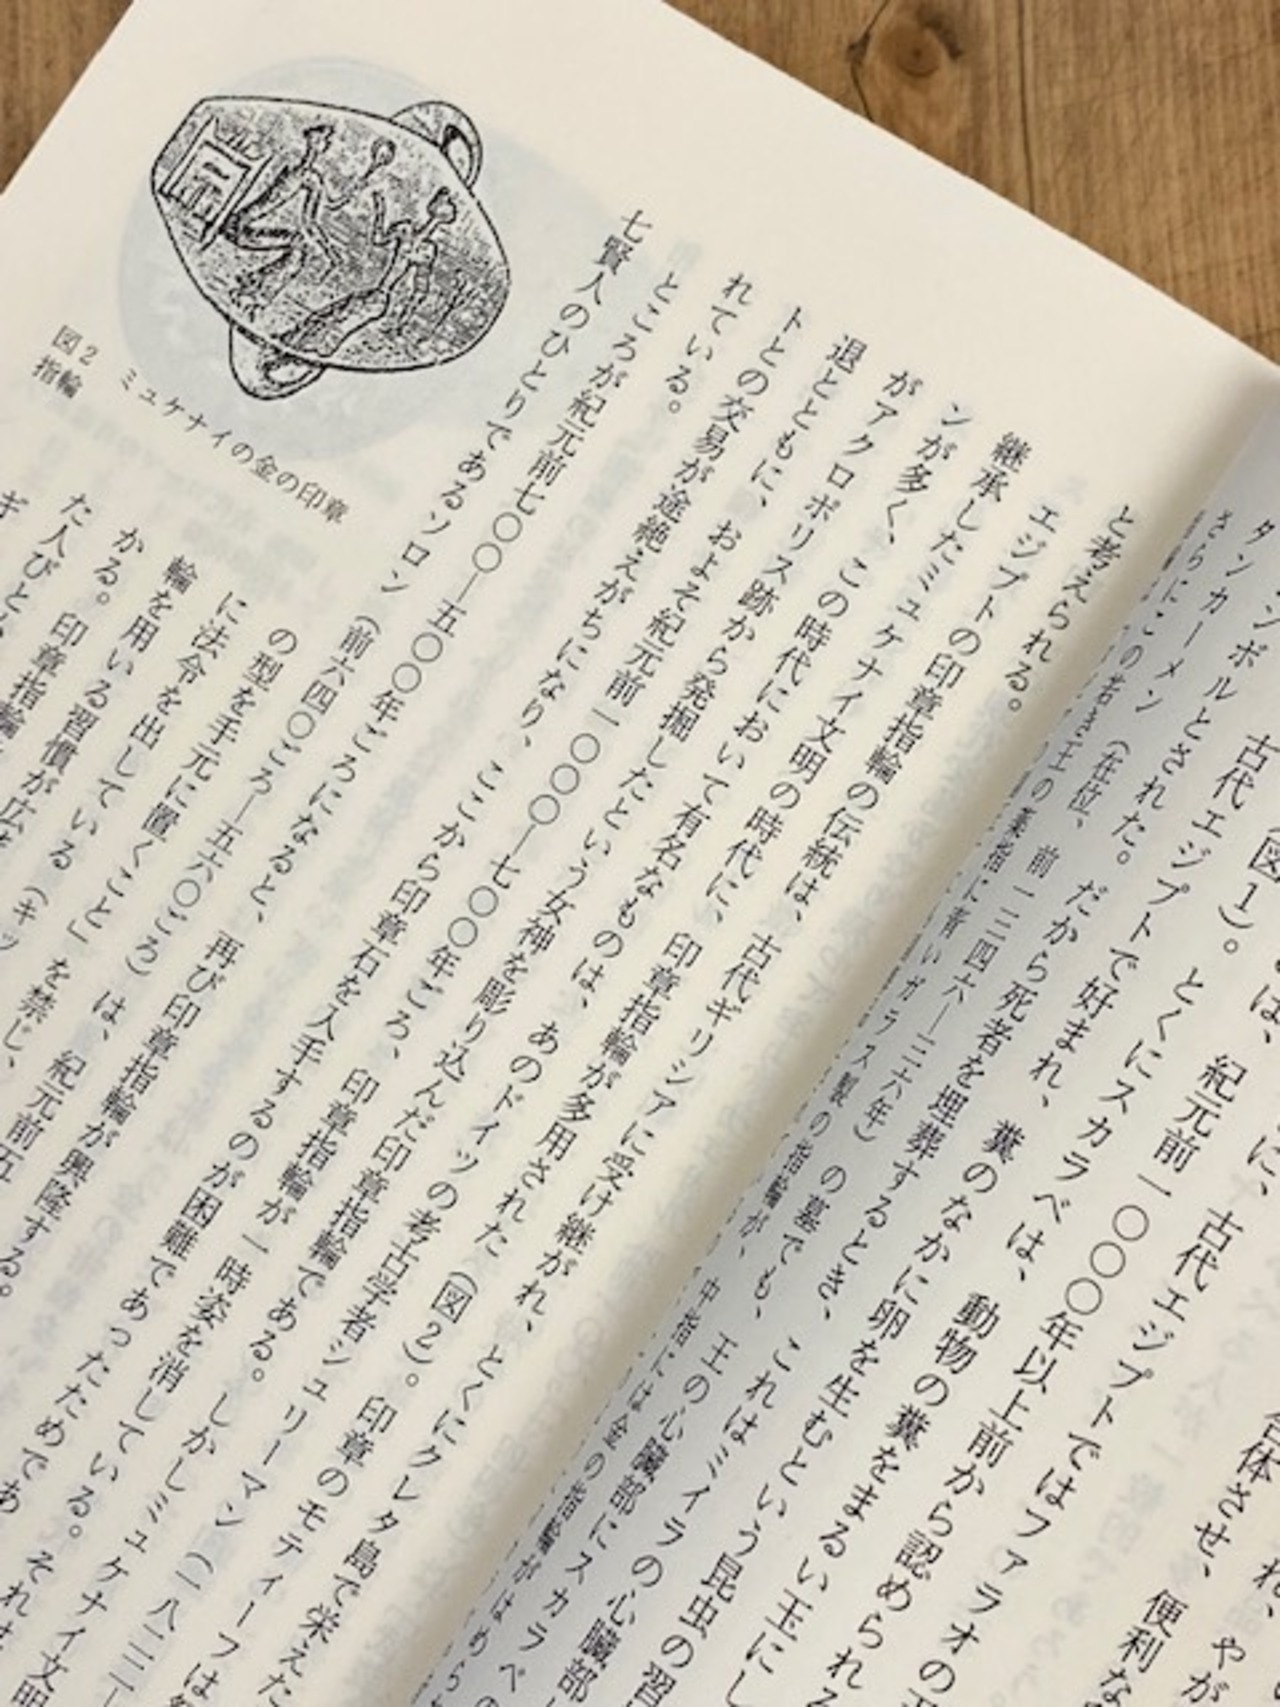 れ、やが
合体させ、便利な
に、古代エジプトではファラオの
は、紀元前一〇〇〇年以上前から認められる
(図1)。とくにスカラベは、動物の糞をまるい玉にし
古代エジプトで好まれ、糞のなかに卵を生むという昆虫の習
ンボルとされた。だから死者を埋葬するとき、これはミイラの心臓部
タンカーメン(在位、前一三四六—三六年)の墓でも、王の心臓部にスカラベの
さらにこの若き王の薬指に青いガラス製の指輪が、中指には金の指輪がはめら
と考えられる。
エジプトの印章指輪の伝統は、古代ギリシアに受け継がれ、とくにクレタ島で栄えた
継承したミュケナイ文明の時代に、印章指輪が多用された(図2)。印章のモティーフは
ンが多く、この時代において有名なものは、あのドイツの考古学者シュリーマン(一八二二—
がアクロポリス跡から発掘したという女神を彫り込んだ印章指輪である。しかしミュケナイ文明
退とともに、およそ紀元前一〇〇〇—七〇〇年ごろ、印章指輪が一時姿を消している。それも
トとの交易が途絶えがちになり、ここから印章石を入手するのが困難であったためであ
れている。
ところが紀元前七〇〇—五〇〇年ごろになると、再び印章指輪が興隆する。
七賢人のひとりであるソロン(前六四〇ごろ—五六〇ごろ)は、紀元前五
の型を手元に置くこと」を禁じ、
に法令を出している(キッ
輪を用いる習慣が広
かる。印章指輪
た人びと
ギ
図2 ミュケナイの金の印章
指輪